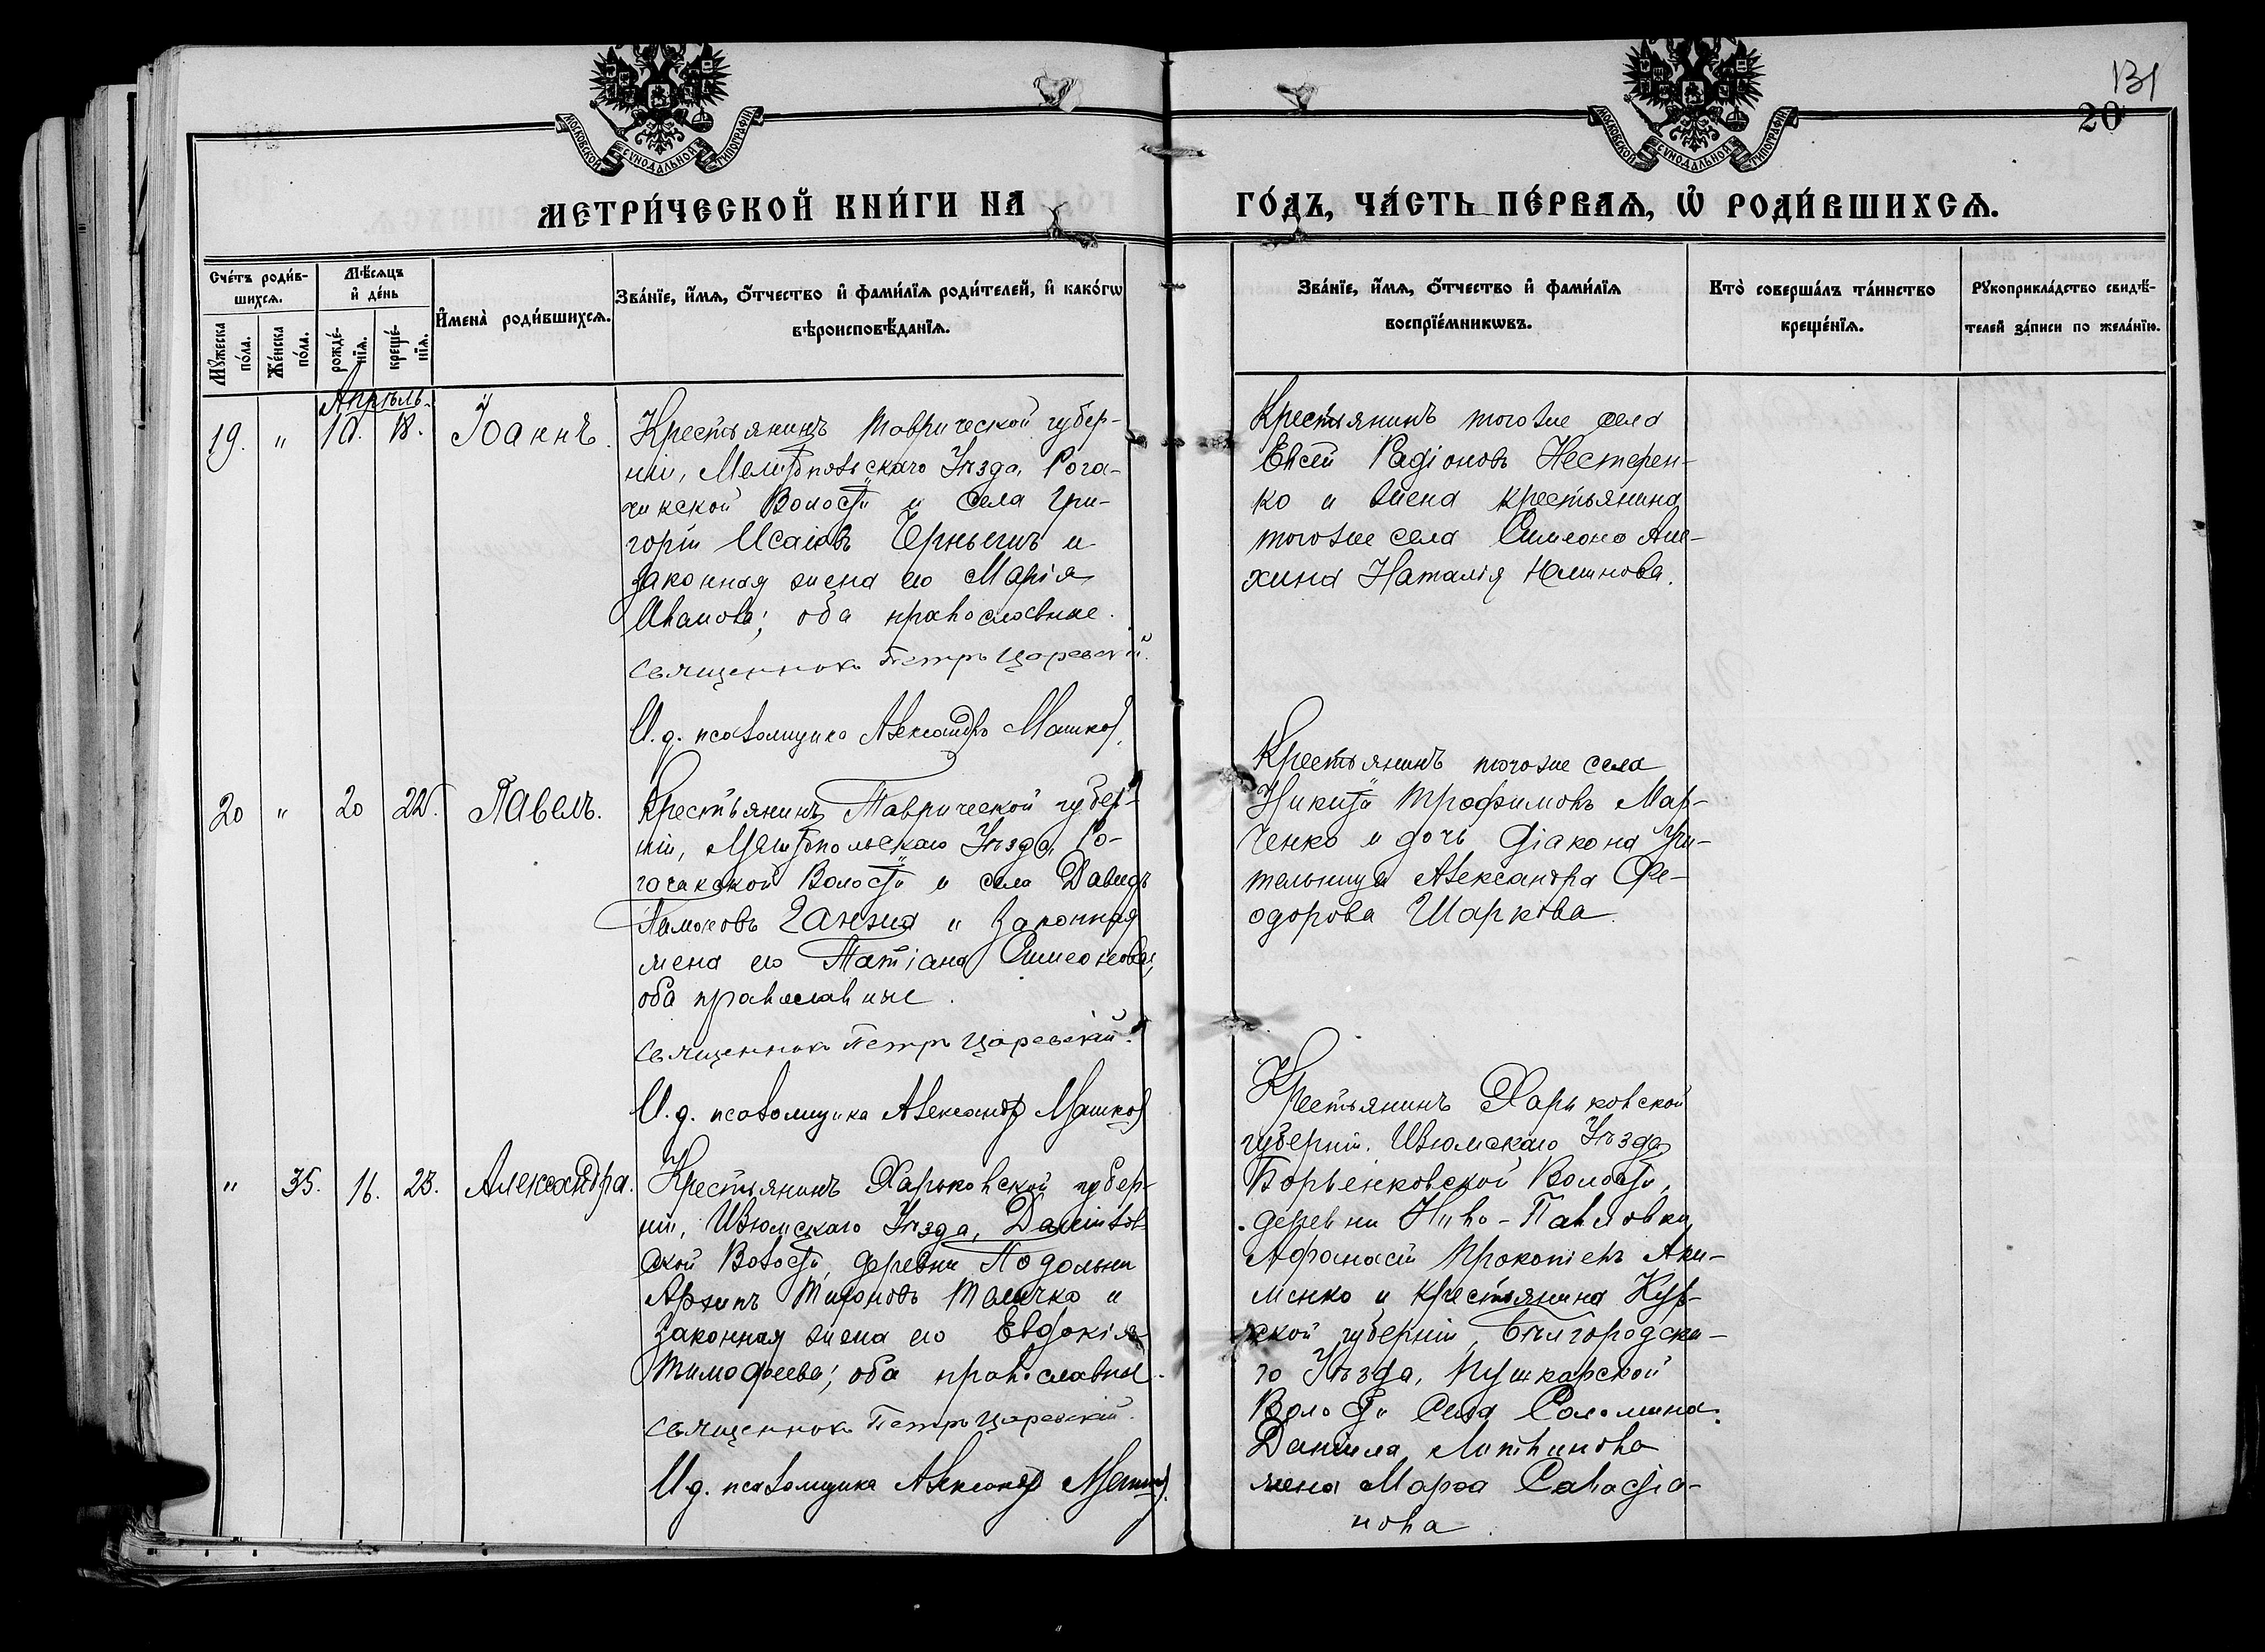 131
20
МОСКОВСКОЙ СѴНОДАЛЬНОЙ ТИПОГРАФІИ
МОСКОВСКОЙ СѴНОДАЛЬНОЙ ТИПОГРАФІИ
МЕТРИ́ЧЕСКОЙ КНИ́ГИ НА ГО́ДЪ, ЧА́СТЬ ПЕ́РВАѦ, Ѡ҆ РОДИ́ВШИХСѦ.
Сче́тъ роди́в-
шихсѧ.
Мꙋ́жеска по́ла.
Же́нска по́ла.
Мѣ́сѧцъ
и҆ де́нь
рожде́-
нїѧ.
креще́-
нїѧ.
И҆мена̀ роди́вшихсѧ.
Зва́нїе, и҆́мѧ, ѻ҆́тчество и҆ фами́лїѧ роди́телей, и҆ како́гѡ
вѣроисповѣ́данїѧ.
Зва́нїе, и҆́мѧ, ѻ҆́тчество и҆ фами́лїѧ
воспрїе́мникѡвъ.
Кто̀ соверша́лъ та́инство
креще́нїѧ.
Рꙋкоприкла́дство свидѣ́-
телей за́писи по жела́нїю.
Апрѣль.
19. " 10. 18. Іоаннъ.
Крестьянинъ Таврической губер-
ніи, Мелитопольскаго Уѣзда, Рога-
чикской Волости и села Гри-
горій Исаіовъ и
законная жена его Марія
Иванова; оба православные.
Священникъ Петръ Царевскій.
И. д. псаломщика Александръ Машков
Крестьянинъ тогоже села
Евсей Радіоновъ Нестерен-
ко и жена крестьянина
тогоже села Симеона Але-
хина Наталія
20 " 20 22. Павелъ.
Крестьянинъ Таврической губер-
ніи, Мелитопольскаго Уѣзда, Ро-
гачикской Волости и села Давидъ
Ганжа и законная
жена его Татіана Симеонова,
оба православные.
Священникъ Петръ Царевскій.
И. д. псаломщика Александр Машков
Крестьянинъ тогоже села
Никита Трофимовъ Мар-
ченко и дочь діакона Учи-
тельница Александра Фе-
одорова Шаркова.
" 35. 16. 23. Александра.
Крестьянинъ Харьковской губер-
ніи, Изюмскаго Уѣзда,
ской Волости, деревни Подольни
Архипъ Тихоновъ и
законная жена его Евдокія
Тимофеева; оба православные.
Священникъ Петръ Царевскій.
И. д. псаломщика Александр Машков
Крестьянинъ Харьковской
губерніи. Изюмскаго Уѣзда
Барвенковской Волости,
деревни Ниво-Павловки
Афанасій Прокопіевъ Аки-
менко и крестьянина Кур-
ской губерніи, Бѣлгородска-
го Уѣзда, Пушкарской
Волости Села Соломина.
Даніила Литвинова
жена Марфа Савастіа-
нова.